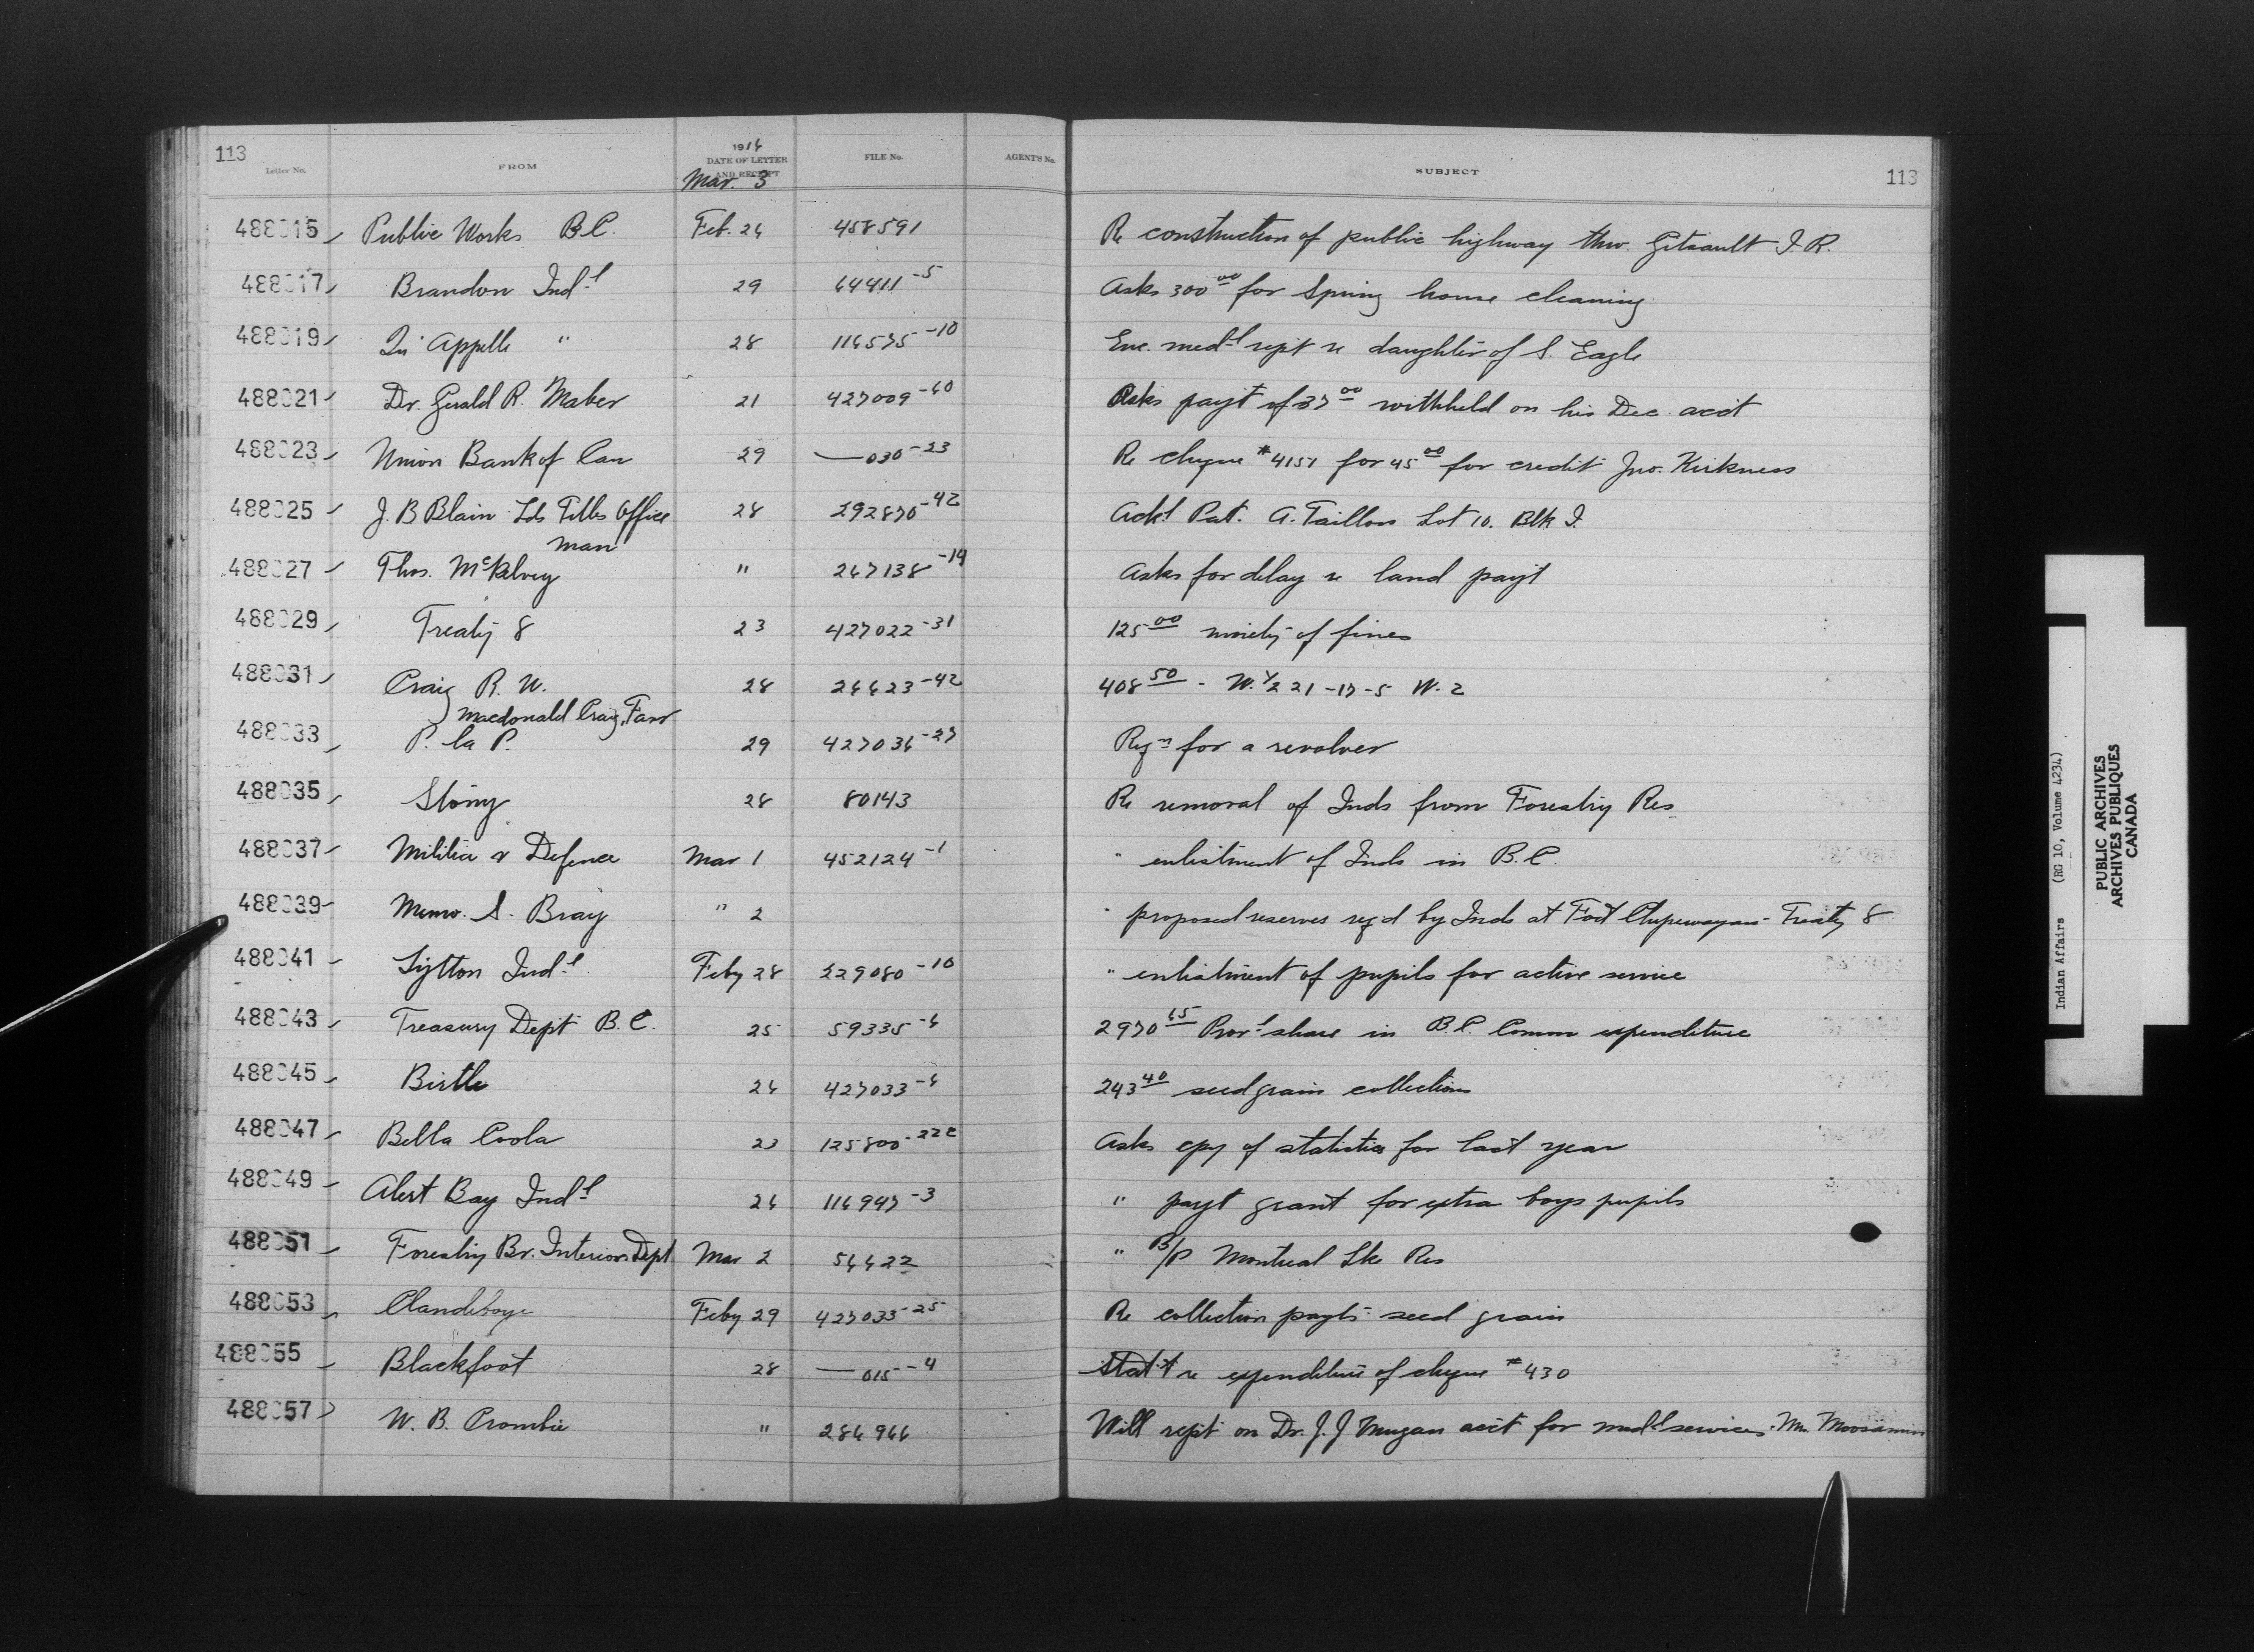 113
1916
Letter No. FROM DATE OF LETTER AND RECEIPT FILE No. AGENT'S No. SUBJECT 113
Mar. 3
488015 Public Works B.C. Feb. 26 458591 Re construction of public highway thro. Gitsault I. R.
488017 Brandon Ind-l 29 64411-5 Asks 300 00 for Spring house cleaning
488019 Qu'Appelle " 28 116575-10 Enc. med-l rept re daughter of S. Eagle
488021 Dr. Gerald R. Maber 21 427009-60 Asks payt of 37 00 withheld on his Dec. acct
488023 Union Bank of Can 29 —030-23 Re cheque #4151 for 45 00 for credit Jno. Kirkness
488025 J. B Blain Lds Titles Office 28 292870-42 Ackl Pat. A. Taillon Lot 10. Blk I.
Man
488027 Thos. McKelvey " 267138-14 Asks for delay re land payt
488029 Treaty 8 23 427022-31 125 00 moiety of fines
488031 Craig R. W. 28 26623-42 408 50 - W. 1/2 21-17-5 W. 2
Macdonald Craig, Farr
488033 P. la P. 29 427036-27 Reqn for a revolver
488035 Stony 28 80143 Re removal of Inds from Forestry Res
488037 Militia & Defence Mar 1 452124-1 " enlistment of Inds in B.C.
488039 Memo. S. Bray " 2 " proposed reserves reqd by Inds at Fort Chipewayan - Treaty 8
488041 Lytton Ind-l Feby 28 229080-10 " enlistment of pupils for active service
488043 Treasury Dept B.C. 25 59335-6 2970 65 Prov-l share in B.C. Comm expenditure
488045 Birtle 26 427033-6 243 40 seed grain collections
488047 Bella Coola 23 125800-22c Asks cpy of statistics for last year
488049 Alert Bay Ind-l 26 116947-3 " payt grant for extra boys pupils
488051 Forestry Br. Interior Dept Mar 2 56622 " B/P Montreal Lke Res
488053 Clandeboye Feby 29 427033-25 Re collection payts seed grain
488055 Blackfoot 28 —015-4 Stat't re expenditure of cheque #430
488057 W. B. Crombie " 286966 Will rept on Dr. J. J Mugan acct for med-l services. Mrs Moosomin
Indian Affairs (RG 10, Volume 4234)
PUBLIC ARCHIVES
ARCHIVES PUBLIQUES
CANADA